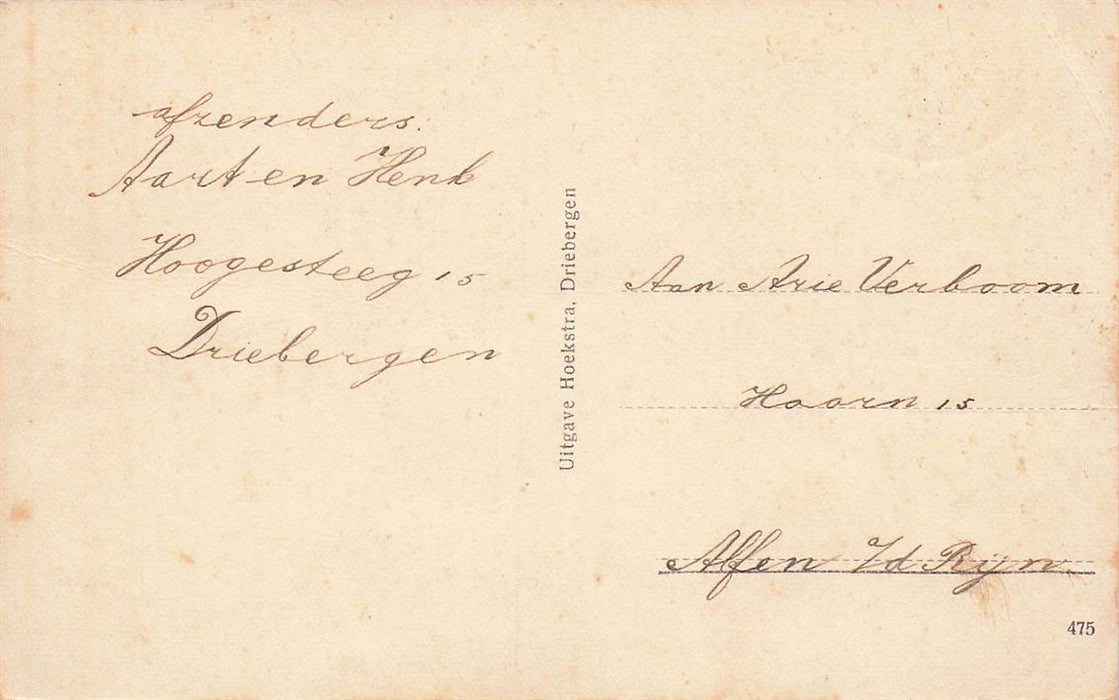 afzenders.
Aart en Henk
Hoogesteeg 15
Driebergen
Uitgave Hoekstra, Driebergen
Aan Arie Verboom
Hoorn 15
Alfen a/d Rijn
475